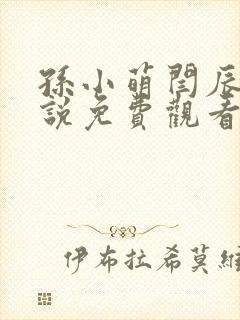 孫小萌閆辰
說免費觀看
伊布拉希莫維